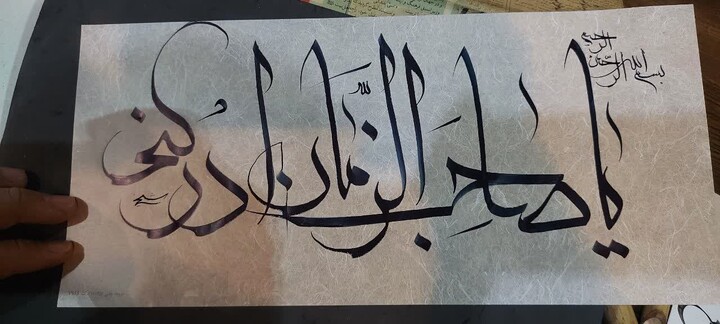 بسم الله الرحمن الرحيم
یا صاحب الزّمان ادرکنی